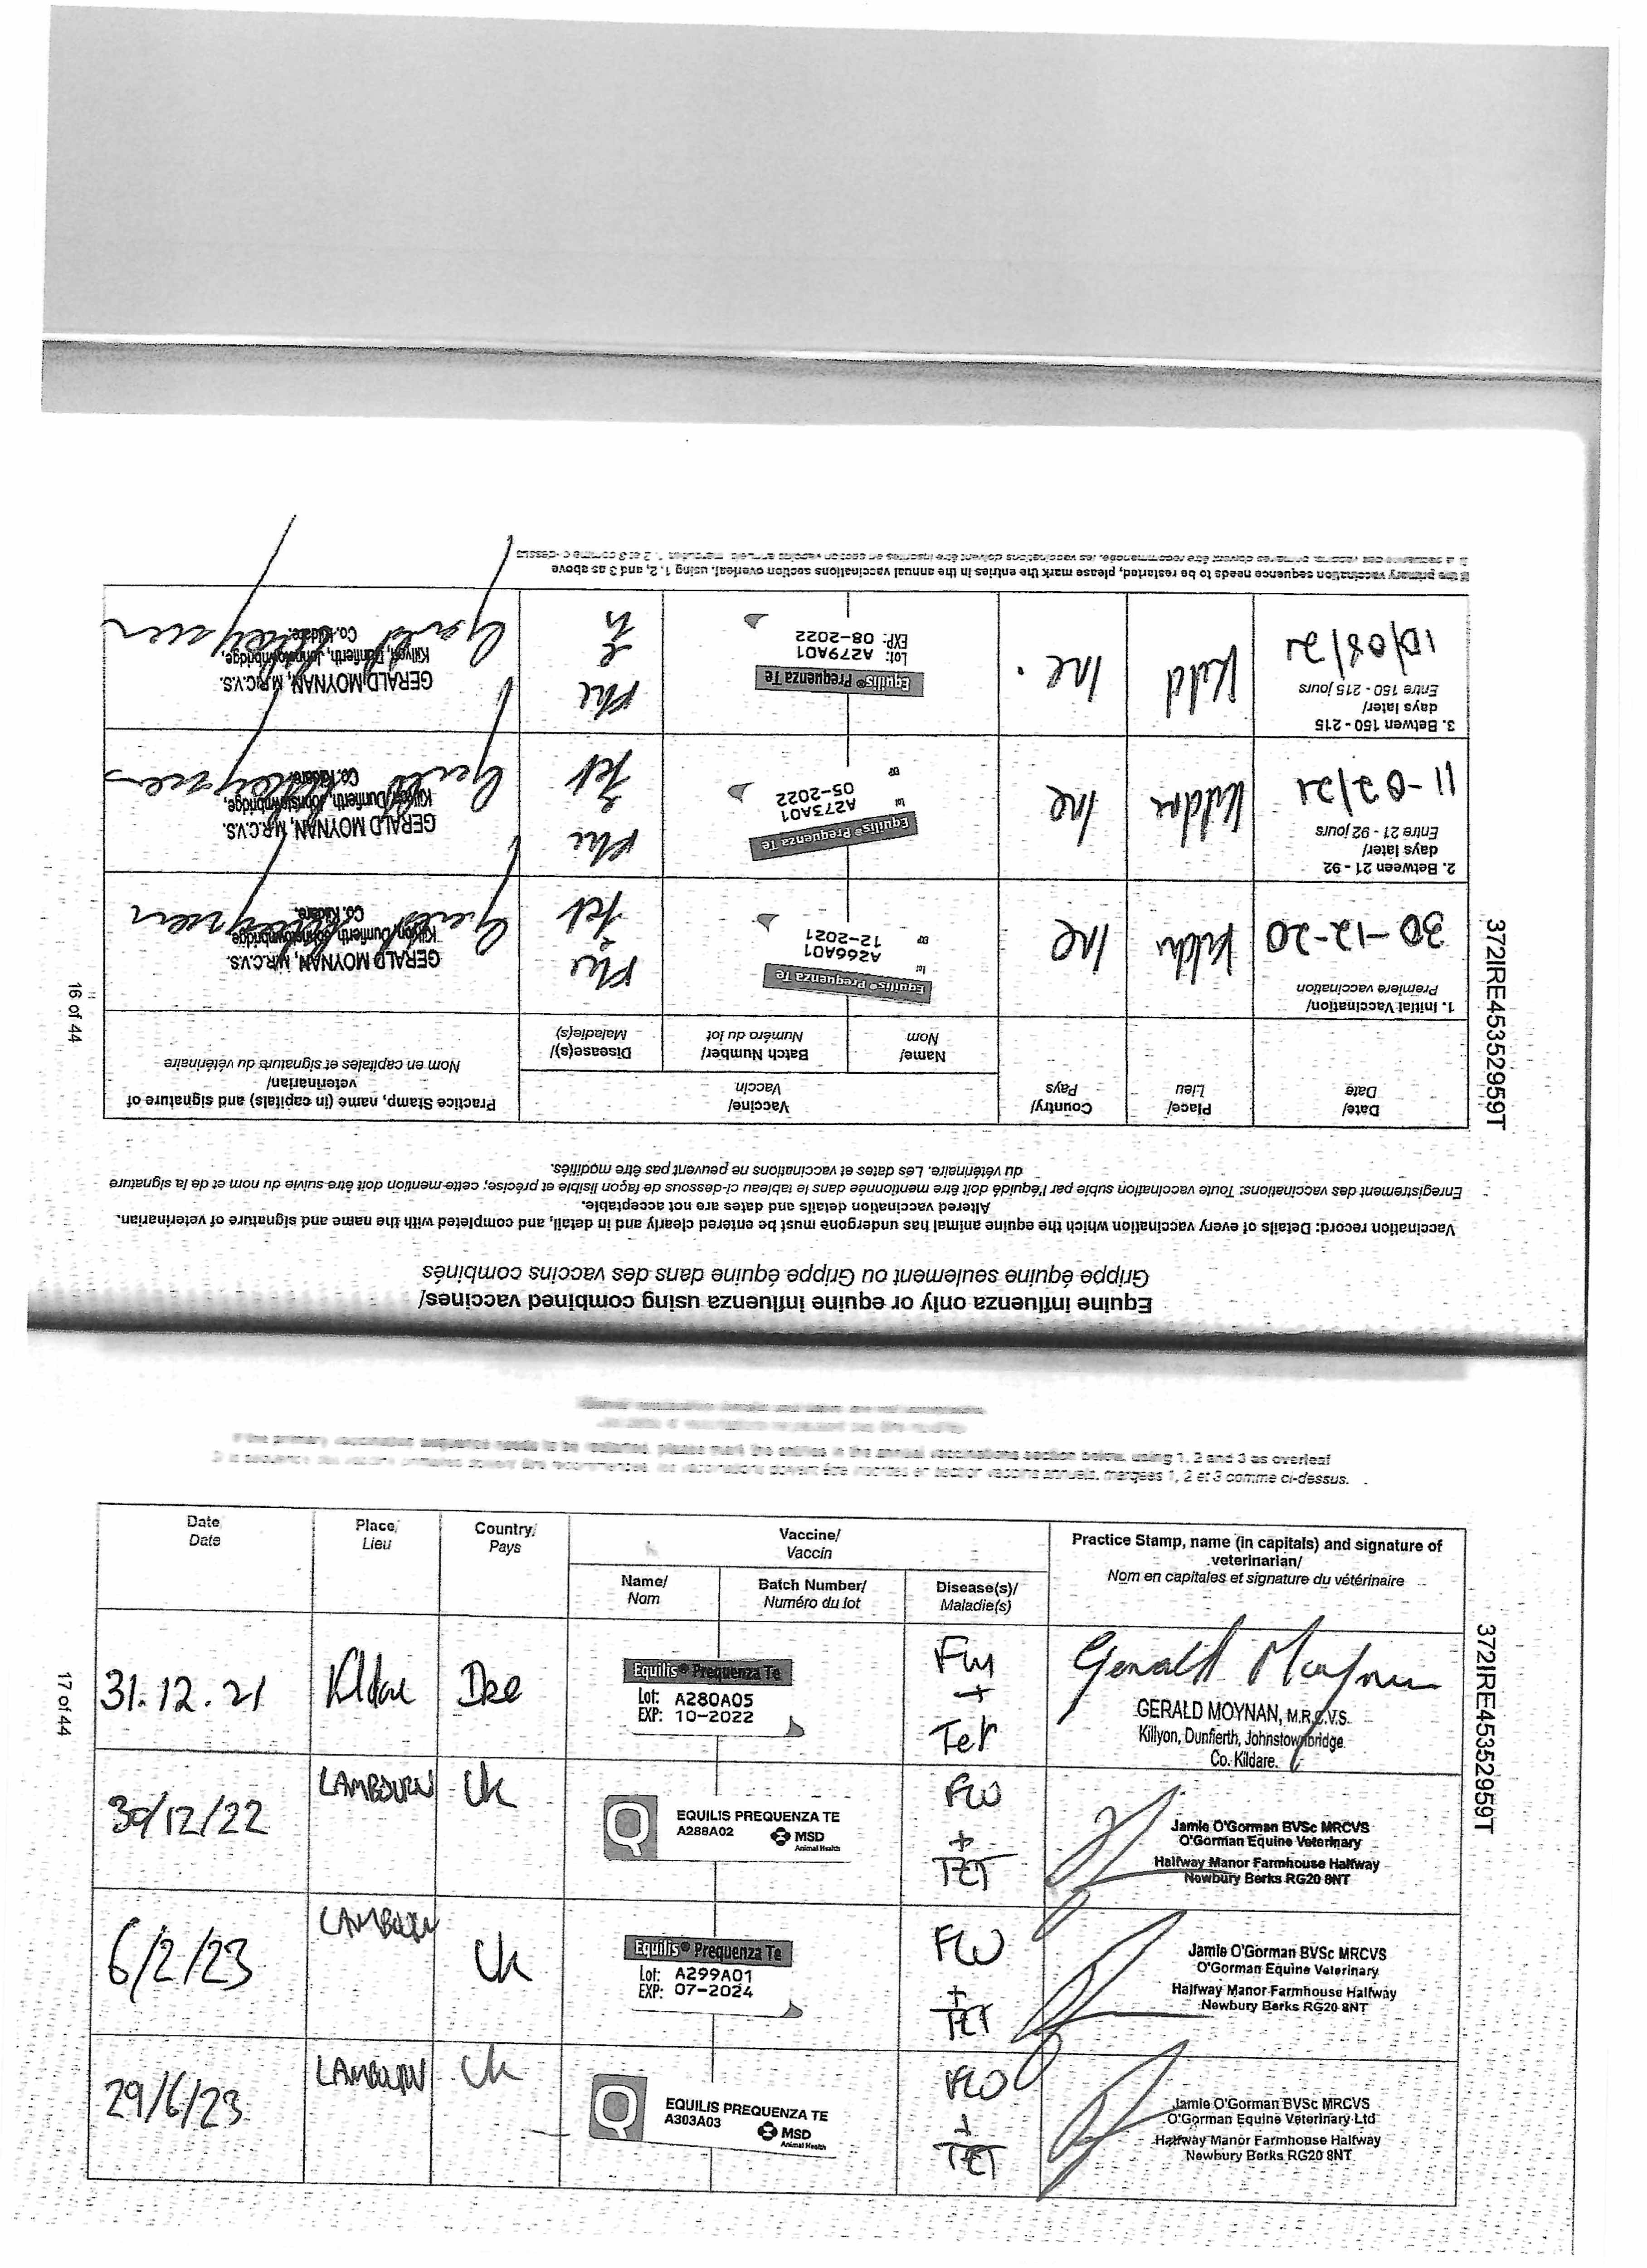 Equine influenza only or equine influenza using combined vaccines/
Grippe équine seulement ou Grippe équine dans des vaccins combinés
Vaccination record: Details of every vaccination which the equine animal has undergone must be entered clearly and in detail, and completed with the name and signature of veterinarian.
Altered vaccination details and dates are not acceptable.
Enregistrement des vaccinations: Toute vaccination subie par l'équidé doit être mentionnée dans le tableau ci-dessous de façon lisible et précise; cette mention doit être suivie du nom et de la signature
du vétérinaire. Les dates et vaccinations ne peuvent pas être modifiés.
Date/
Date
Place/
Lieu
Country/
Pays
Vaccine/
Vaccin
Name/
Nom
Batch Number/
Numéro du lot
Disease(s)/
Maladie(s)
Practice Stamp, name (in capitals) and signature of
veterinarian/
Nom en capitales et signature du vétérinaire
1. Initial Vaccination/
Premiere vaccination
30-12-20
Ire
Equilis® Prequenza Te
Lot A266A01
EXP 12-2021
Tet
GERALD MOYNAN, M.R.C.V.S.
Killyon, Dunfierth, Johnstownbridge
Co. Kildare.
2. Between 21 - 92
days later/
Entre 21 - 92 jours
11-02/21
Kildare
Ire
Equilis® Prequenza Te
Lot A273A01
EXP 05-2022
Tet
GERALD MOYNAN, M.R.C.V.S.
Killyon, Dunfierth, Johnstownbridge,
Co. Kildare.
3. Betwen 150 - 215
days later/
Entre 150 - 215 jours
10/08/21
Kild
Ire.
Equilis® Prequenza Te
Lot: A279A01
EXP: 08-2022
GERALD MOYNAN, M.R.C.V.S.
Killyon, Dunfierth, Johnstownbridge,
Co. Kildare.
If the primary vaccination sequence needs to be restarted, please mark the entries in the annual vaccinations section overleaf, using 1, 2, and 3 as above
16 of 44
372IRE45352959T
If the primary vaccination sequence needs to be restarted, please mark the entries in the annual vaccinations section below, using 1, 2 and 3 as overleaf
Date
Date
Place/
Lieu
Country/
Pays
Vaccine/
Vaccin
Name/
Nom
Batch Number/
Numéro du lot
Disease(s)/
Maladie(s)
Practice Stamp, name (in capitals) and signature of
veterinarian/
Nom en capitales et signature du vétérinaire
31.12.21
Kildare
Ire
Equilis® Prequenza Te
Lot: A280A05
EXP: 10-2022
Flu
+
Tet
Gerald Moynan
GERALD MOYNAN, M.R.C.V.S.
Killyon, Dunfierth, Johnstownbridge
Co. Kildare.
30/12/22
LAMBOURN
UK
Q
EQUILIS PREQUENZA TE
A288A02
MSD
Animal Health
FLU
+
TET
Jamie O'Gorman BVSc MRCVS
O'Gorman Equine Veterinary
Halfway Manor Farmhouse Halfway
Newbury Berks RG20 8NT
6/2/23
LAMBOURN
UK
Equilis® Prequenza Te
Lot: A299A01
EXP: 07-2024
FLU
+
TET
Jamie O'Gorman BVSc MRCVS
O'Gorman Equine Veterinary
Halfway Manor Farmhouse Halfway
Newbury Berks RG20 8NT
29/6/23
LAMBOURN
UK
Q
EQUILIS PREQUENZA TE
A303A03
MSD
Animal Health
FLU
+
TET
Jamie O'Gorman BVSc MRCVS
O'Gorman Equine Veterinary Ltd
Halfway Manor Farmhouse Halfway
Newbury Berks RG20 8NT
17 of 44
372IRE45352959T